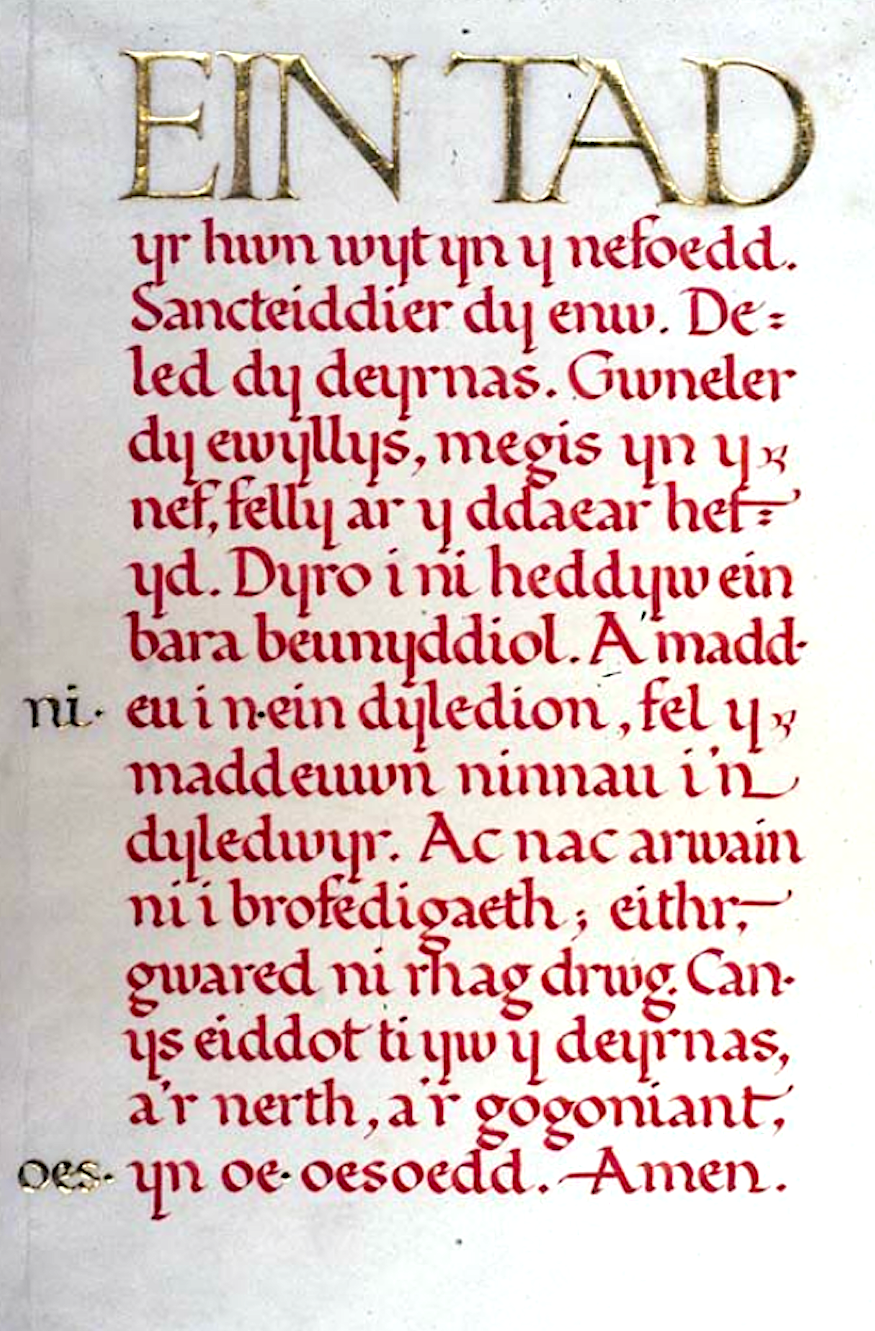 EIN TAD
yr hwn wyt yn y nefoedd.
Sancteiddier dy enw. De=
led dy deyrnas. Gwneler
dy ewyllys, megis yn y
nef, felly ar y ddaear hef=
yd. Dyro i ni heddyw ein
bara beunyddiol. A' madd-
ni· eu i n·ein dyledion, fel y
maddeuwn ninnau i'n
dyledwyr. Ac nac arwain
ni i brofedigaeth; eithr,
gwared ni rhag drwg. Can-
ys eiddot ti yw y deyrnas,
a'r nerth, a'r gogoniant,
oes· yn oe· oesoedd. Amen.